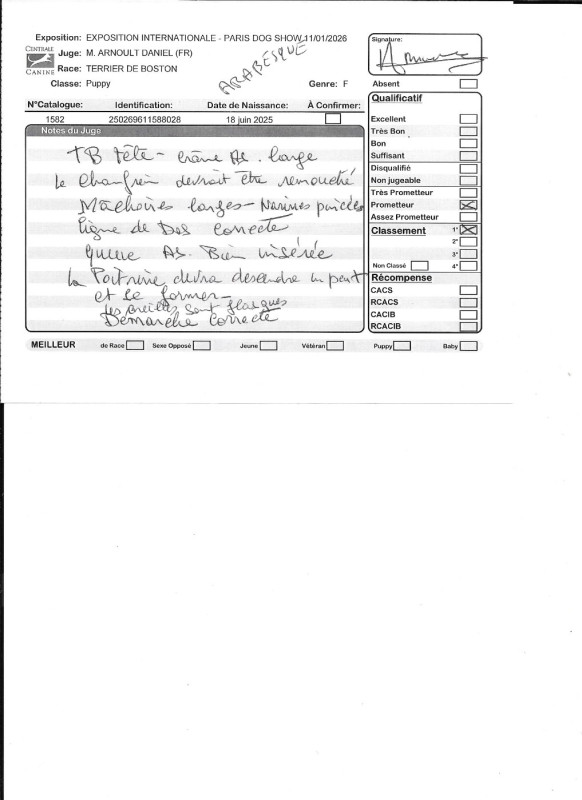 Exposition: EXPOSITION INTERNATIONALE - PARIS DOG SHOW 11/01/2026
CENTRALE CANINE
Juge: M. ARNOULT DANIEL (FR)
Race: TERRIER DE BOSTON
Classe: Puppy
ARABESQUE
Genre: F
N°Catalogue: Identification: Date de Naissance: À Confirmer:
1582 250269611588028 18 juin 2025
Notes du Juge
TB tête - crâne As. large
Le Chanfrein devrait être remouché
Mâchoires larges - Narines pincées
ligne de Dos correcte
queue As. Bien insérée
la Poitrine devra descendre un peu
et se former -
les oreilles sont flasques
Démarche correcte
Signature:
Absent
Qualificatif
Excellent
Très Bon
Bon
Suffisant
Disqualifié
Non jugeable
Très Prometteur
Prometteur
Assez Prometteur
Classement 1°
2°
3°
Non Classé 4°
Récompense
CACS
RCACS
CACIB
RCACIB
MEILLEUR de Race Sexe Opposé Jeune Vétéran Puppy Baby